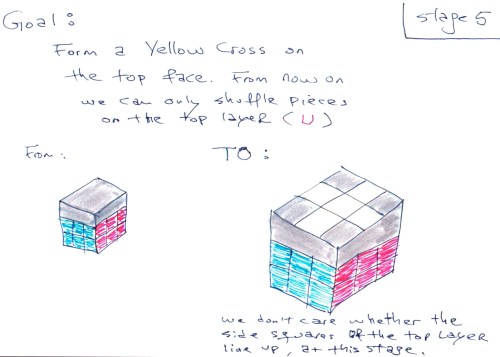 Goal:
stage 5
Form a Yellow Cross on
the top face. From now on
we can only shuffle pieces
on the top layer (U)
From:
TO:
we don't care whether the
side squares of the top layer
line up, at this stage.